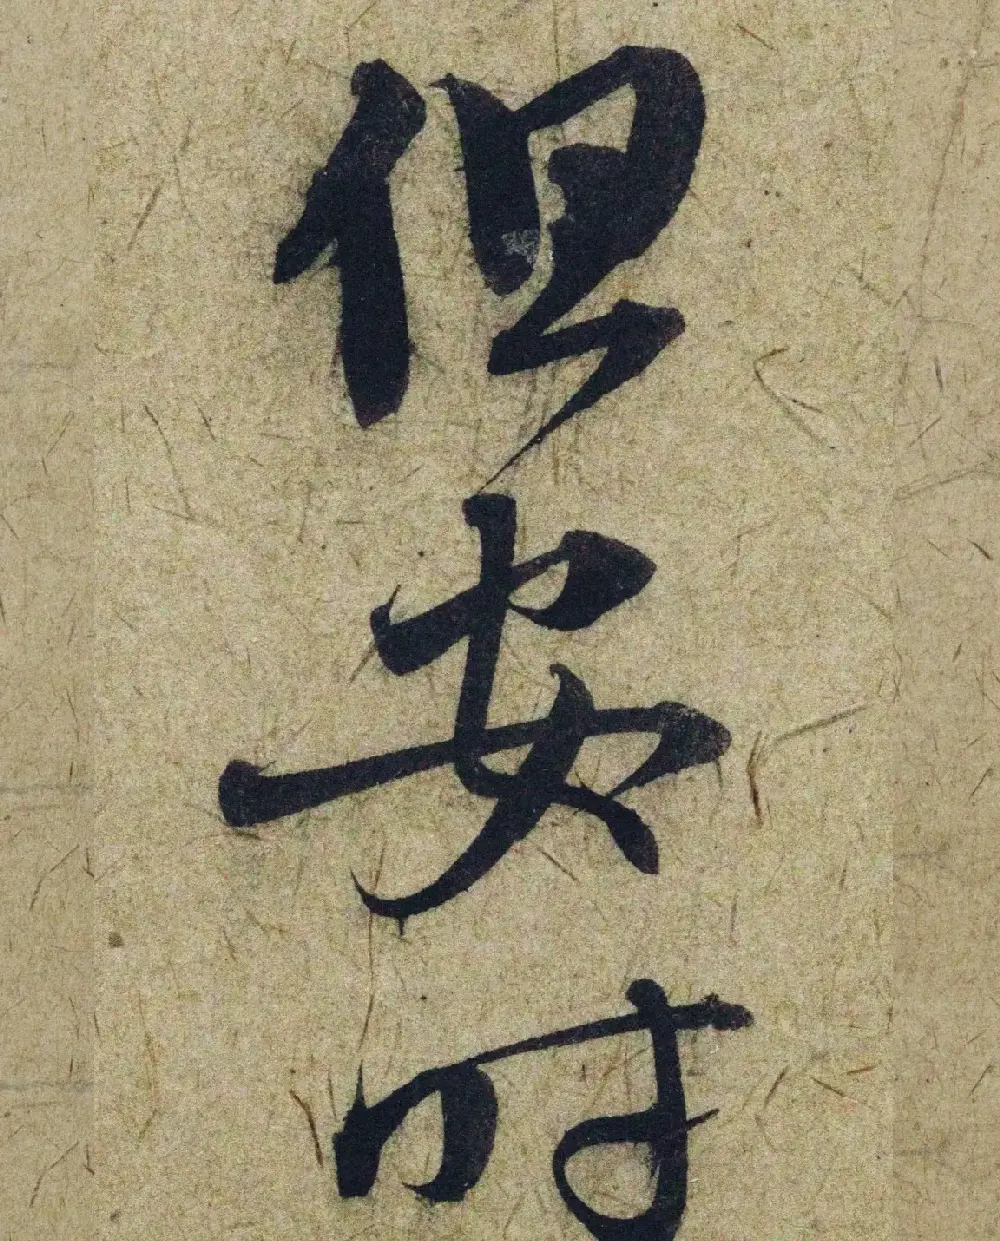 但安时